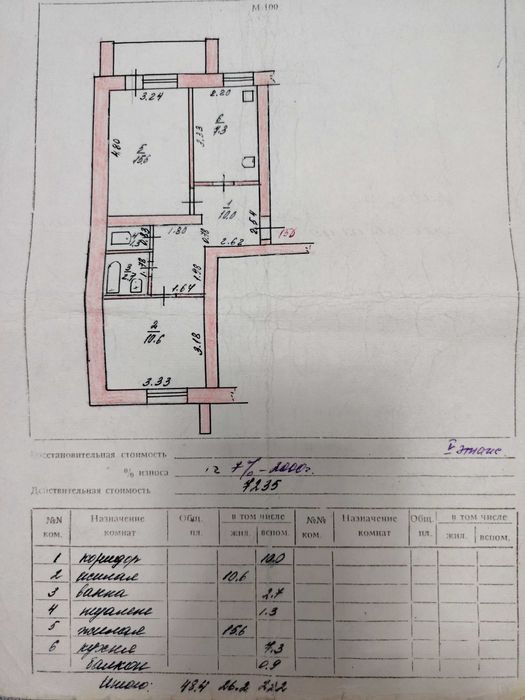 М 1:100
3.24
2.20
4.80
5
15.6
3.33
6
7.3
1
10.0
2.64
150
4
1.3
0.83
1.80
0.78
2.62
3
2.7
1.78
1.98
1.64
2
10.6
3.18
3.33
Восстановительная стоимость
V этаж
% износа 7% - 2000г.
Действительная стоимость 7235
№№ ком.
Назначение комнат
Общ. пл.
в том числе
жил.
вспом.
№№ ком.
Назначение комнат
Общ. пл.
в том числе
жил.
вспом.
1 коридор 10.0
2 жилая 10.6
3 ванна 2.7
4 туалет 1.3
5 жилая 15.6
6 кухня 7.3
балкон 0.9
Итого: 48.4 26.2 22.2